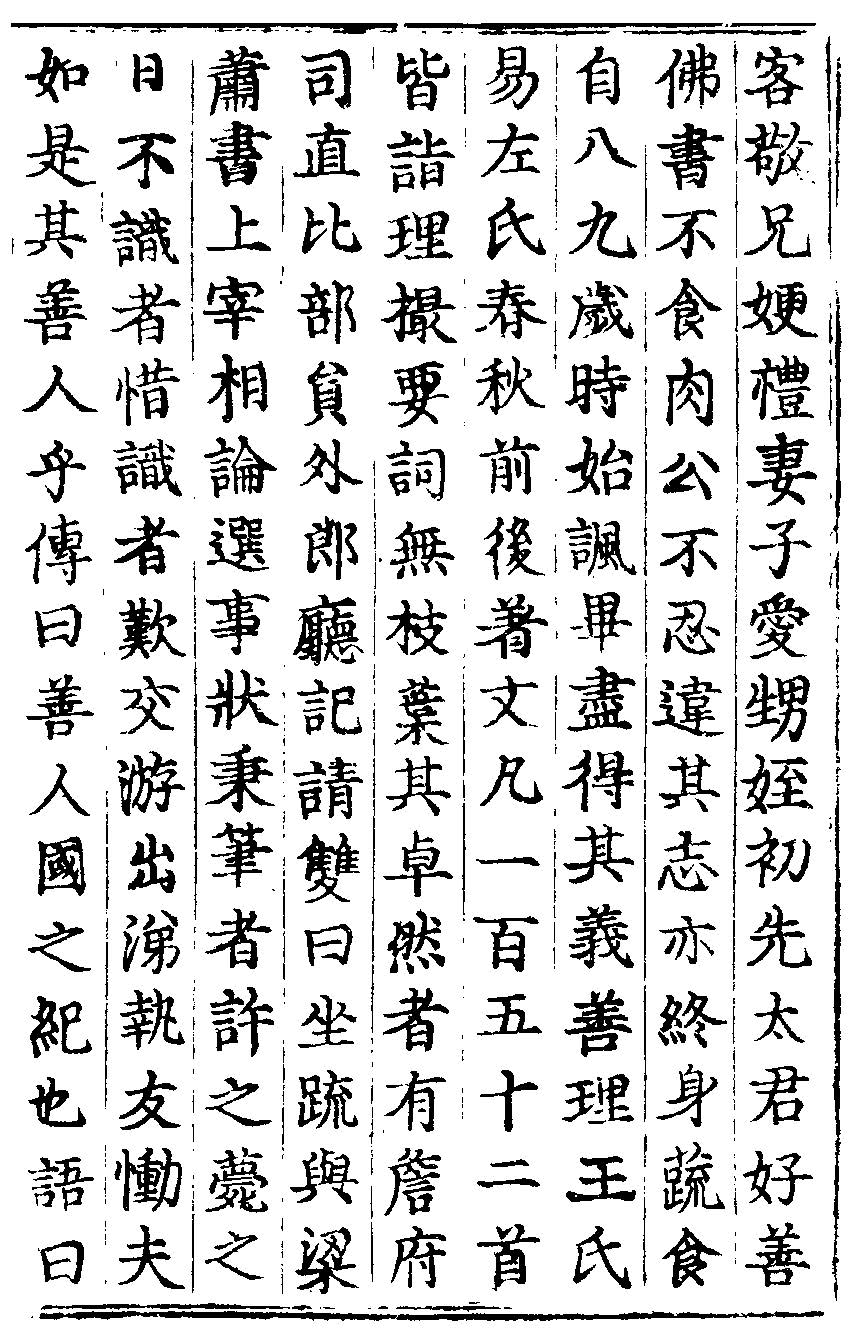 客敬兄㛐禮妻子愛甥姪初先太君好善
佛書不食肉公不忍違其志亦終身蔬食
自八九歲時始諷畢盡得其義善理王氏
易左氏春秋前後著文凡一百五十二首
皆詣理撮要詞無枝葉其卓然者有詹府
司直比部員外郎廳記請雙曰坐疏與梁
蕭書上宰相論選事狀秉筆者許之薨之
日不識者惜識者歎交游出涕執友慟夫
如是其善人乎傳曰善人國之紀也語曰